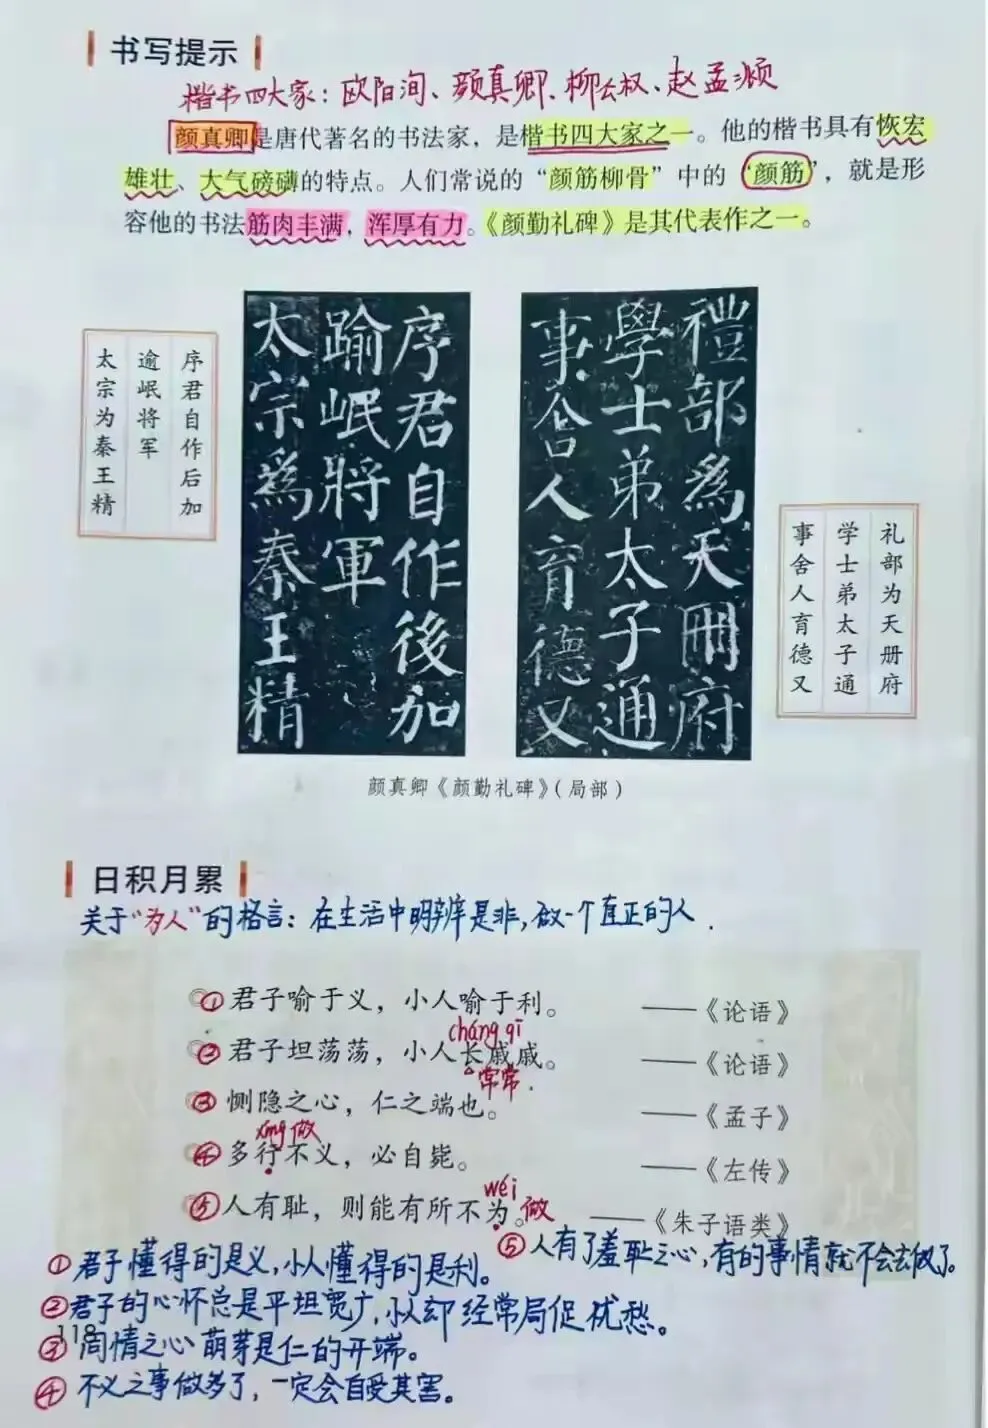 书写提示
楷书四大家：欧阳洵、颜真卿、柳公权、赵孟頫
颜真卿是唐代著名的书法家，是楷书四大家之一。他的楷书具有恢宏
雄壮、大气磅礴的特点。人们常说的“颜筋柳骨”中的“颜筋”，就是形
容他的书法筋肉丰满，浑厚有力。《颜勤礼碑》是其代表作之一。
序君自作后加
逾岷将军
太宗为秦王精
序君自作後加
踰岷將軍
太宗爲秦王精
禮部爲天冊府
學士弟太子通
事舍人育德又
礼部为天册府
学士弟太子通
事舍人育德又
颜真卿《颜勤礼碑》（局部）
日积月累
关于“为人”的格言：在生活中明辨是非，做一个直正的人.
①君子喻于义，小人喻于利。——《论语》
cháng qī
②君子坦荡荡，小人长戚戚。——《论语》
常常.
③恻隐之心，仁之端也。——《孟子》
xíng 做
④多行不义，必自毙。——《左传》
wéi
⑤人有耻，则能有所不为。做——《朱子语类》
⑤人有了羞耻之心，有的事情就不会去做了。
①君子懂得的是义，小人懂得的是利。
②君子的心怀总是平坦宽广，小人却经常局促忧愁。
118
③同情之心萌芽是仁的开端。
④不义之事做多了，一定会自受其害。